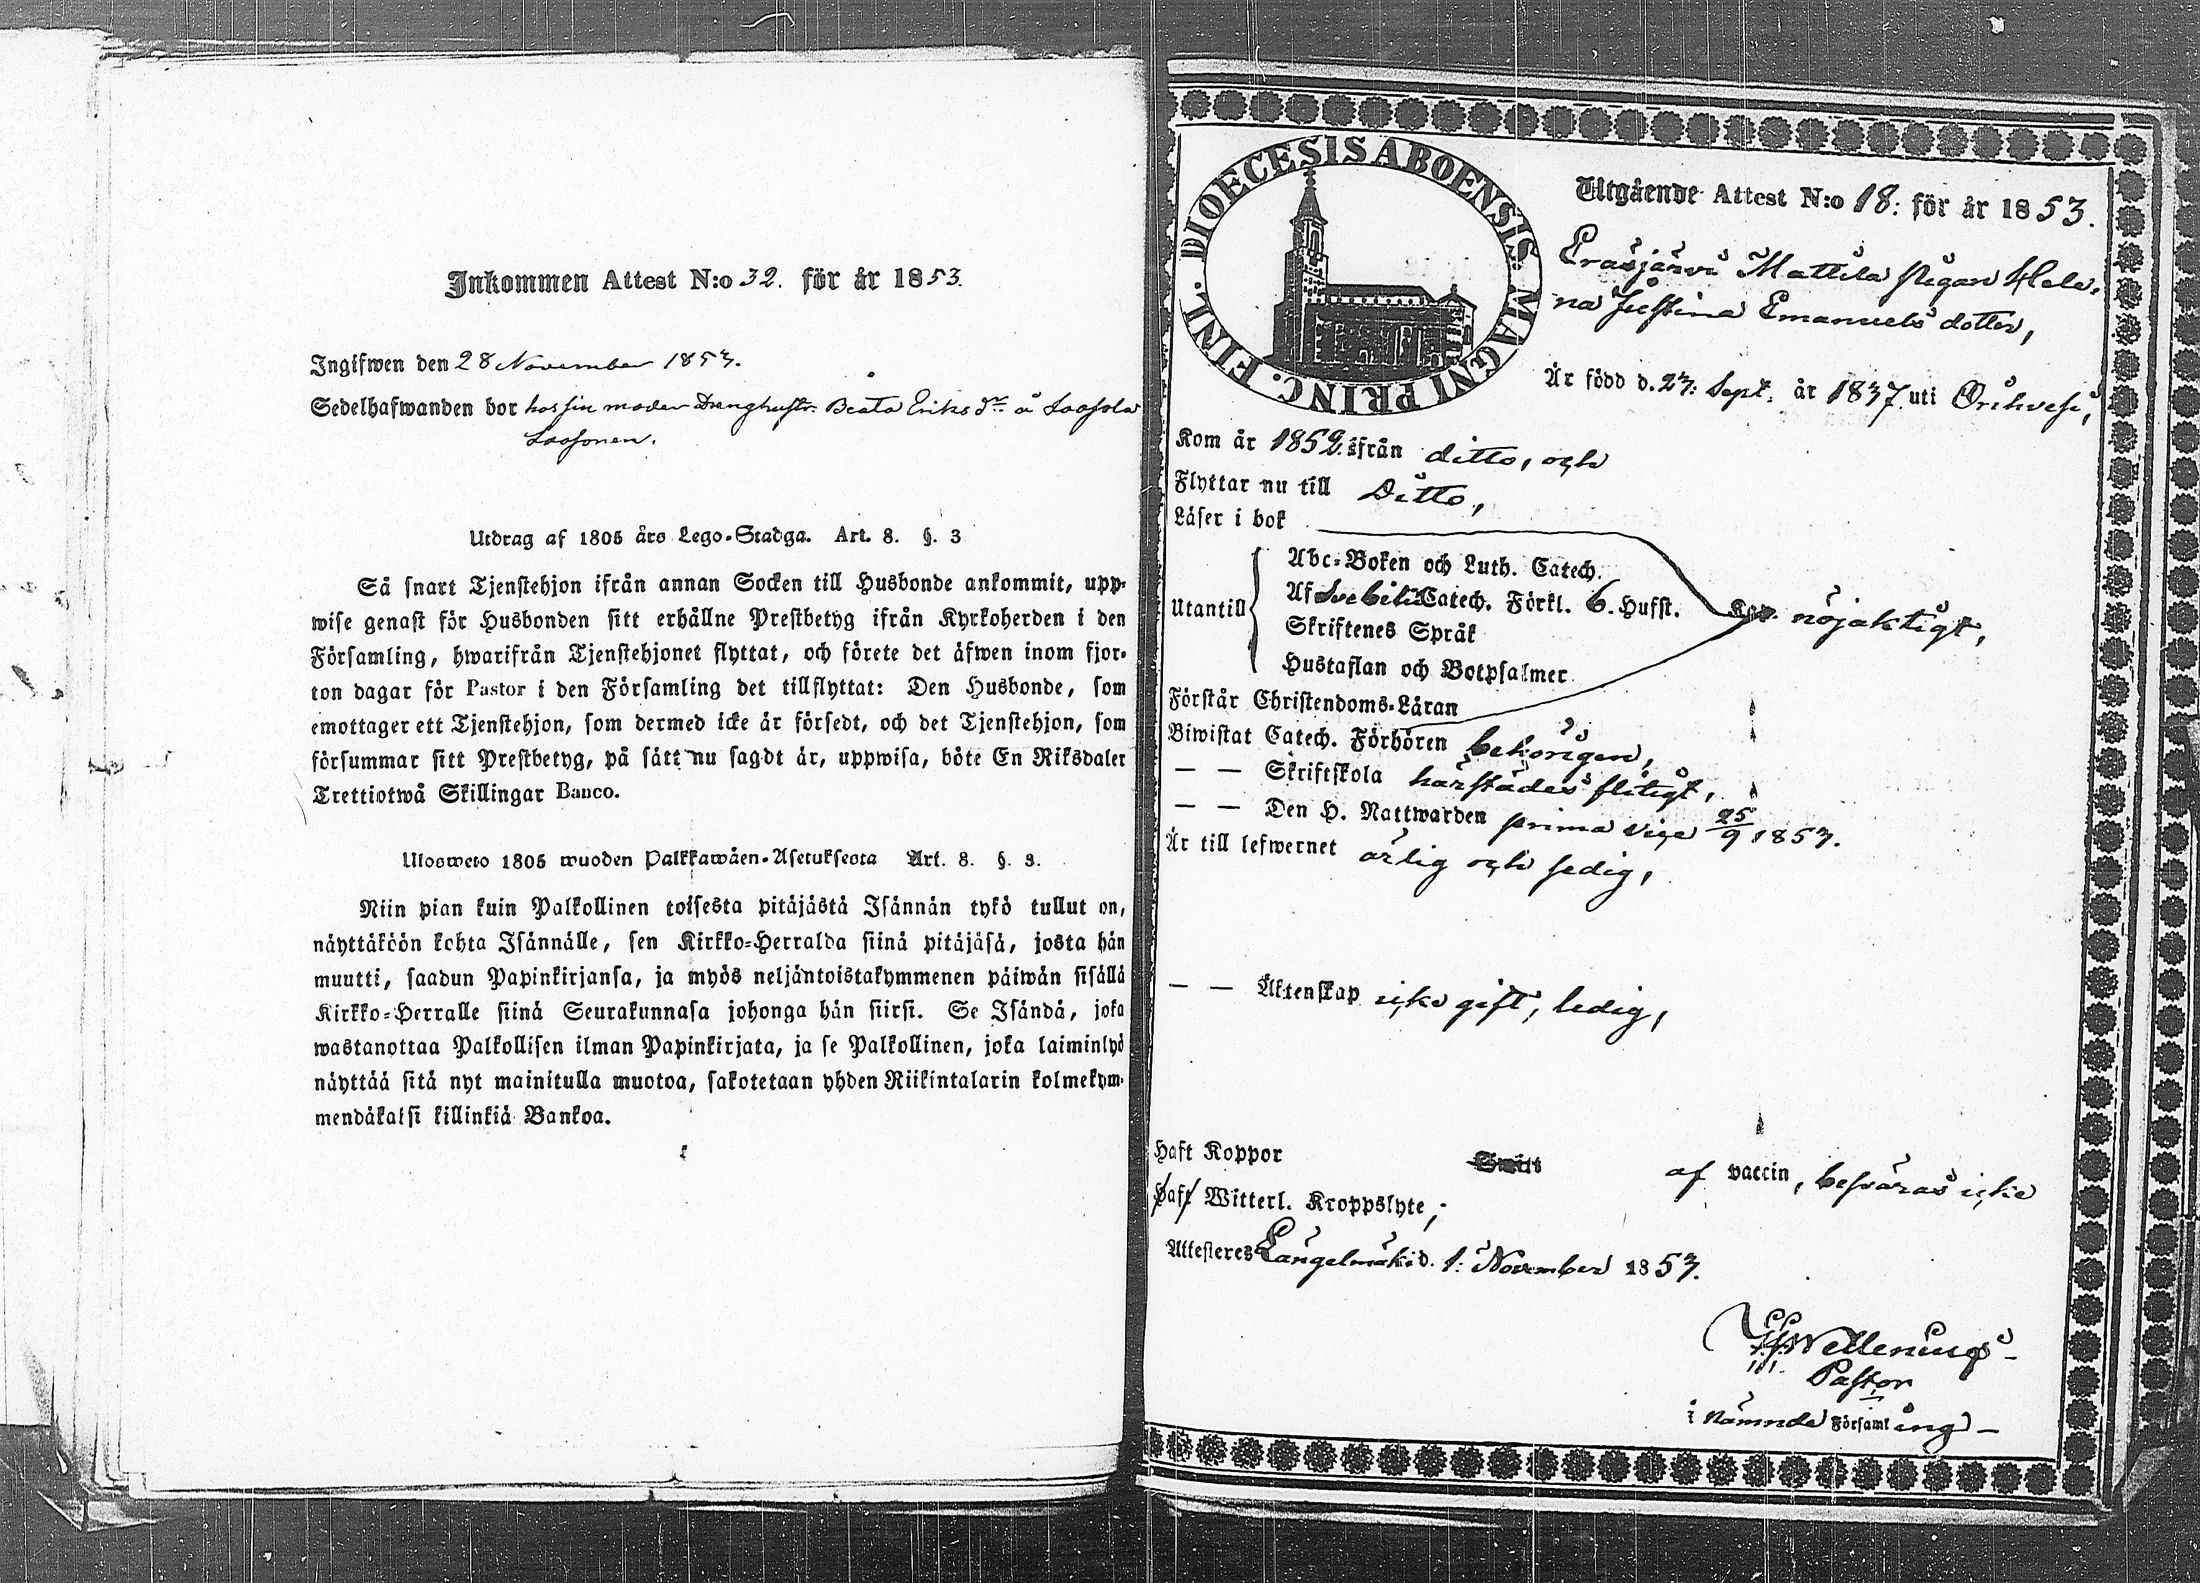 Inkommen Attest N:o 32. för år 1853.
Ingifwen den 28 November 1853.
Sedelhafwanden bor hos sin moder Drenghustr: Beata Eriks dr. å Saasola
Saasonen.
Utdrag af 1805 års Lego-Stadga. Art. 8. §. 3
Så snart Tjenstehjon ifrån annan Socken till Husbonde ankommit, upp-
wise genast för Husbonden sitt erhållne Prestbetyg ifrån Kyrkoherden i den
Församling, hwarifrån Tjenstehjonet flyttat, och förete det äfwen inom fjor-
ton dagar för Pastor i den Församling det tillflyttat: Den Husbonde, som
emottager ett Tjenstehjon, som dermed icke är försedt, och det Tjenstehjon, som
försummar sitt Prestbetyg, på sätt nu sagdt är, uppwisa, böte En Riksdaler
Trettiotwå Skillingar Banco.
Ulosweto 1805 wuoden Palkkawäen-Asetuksesta Art. 8. §. 3.
Niin pian kuin Palkollinen toisesta pitäjästä Isännän tykö tullut on,
näyttäköön kohta Isännälle, sen Kirkko-Herralda siinä pitäjäsä, josta hän
muutti, saadun Papinkirjansa, ja myös neljäntoistakymmenen päiwän sisällä
Kirkko-Herralle siinä Seurakunnasa johonga hän siirsi. Se Isändä, joka
wastanottaa Palkollisen ilman Papinkirjata, ja se Palkollinen, joka laiminlyö
näyttää sitä nyt mainitulla muotoa, sakotetaan yhden Riikintalarin kolmekym-
mendäkaksi killinkiä Bankoa.
DIOECESIS ABOENSIS. MAGNI PRINC. FINL.
Utgående Attest N:o 18: för år 1853.
Eräsjärvi Mattila Pigan Hele-
na Justina Emanuels dotter,
Är född d. 27: Sept. år 1837 uti Orihvesi,
Kom år 1852 ifrån ditto, och
Flyttar nu till Ditto,
Läser i bok
Abc-Boken och Luth. Catech.
Utantill Af Svebilii Catech. Förkl. 6. Hufst. Kap. nöjaktigt,
Skriftenes Språk
Hustaflan och Botpsalmer
Förstår Christendoms-Läran
Biwistat Catech. Förhören behörigen,
— — Skriftskola härstädes flitigt,
— — Den H. Nattwarden prima vice 25/9 1853.
Är till lefwernet ärlig och sedig,
— — Äktenskap icke gift, ledig,
Haft Koppor af vaccin, besväras icke
Haft Witterl. Kroppslyte;
Attesteres Längelmäki d. 1: November 1853.
Wellenius
Pastor
i nämnde Församling